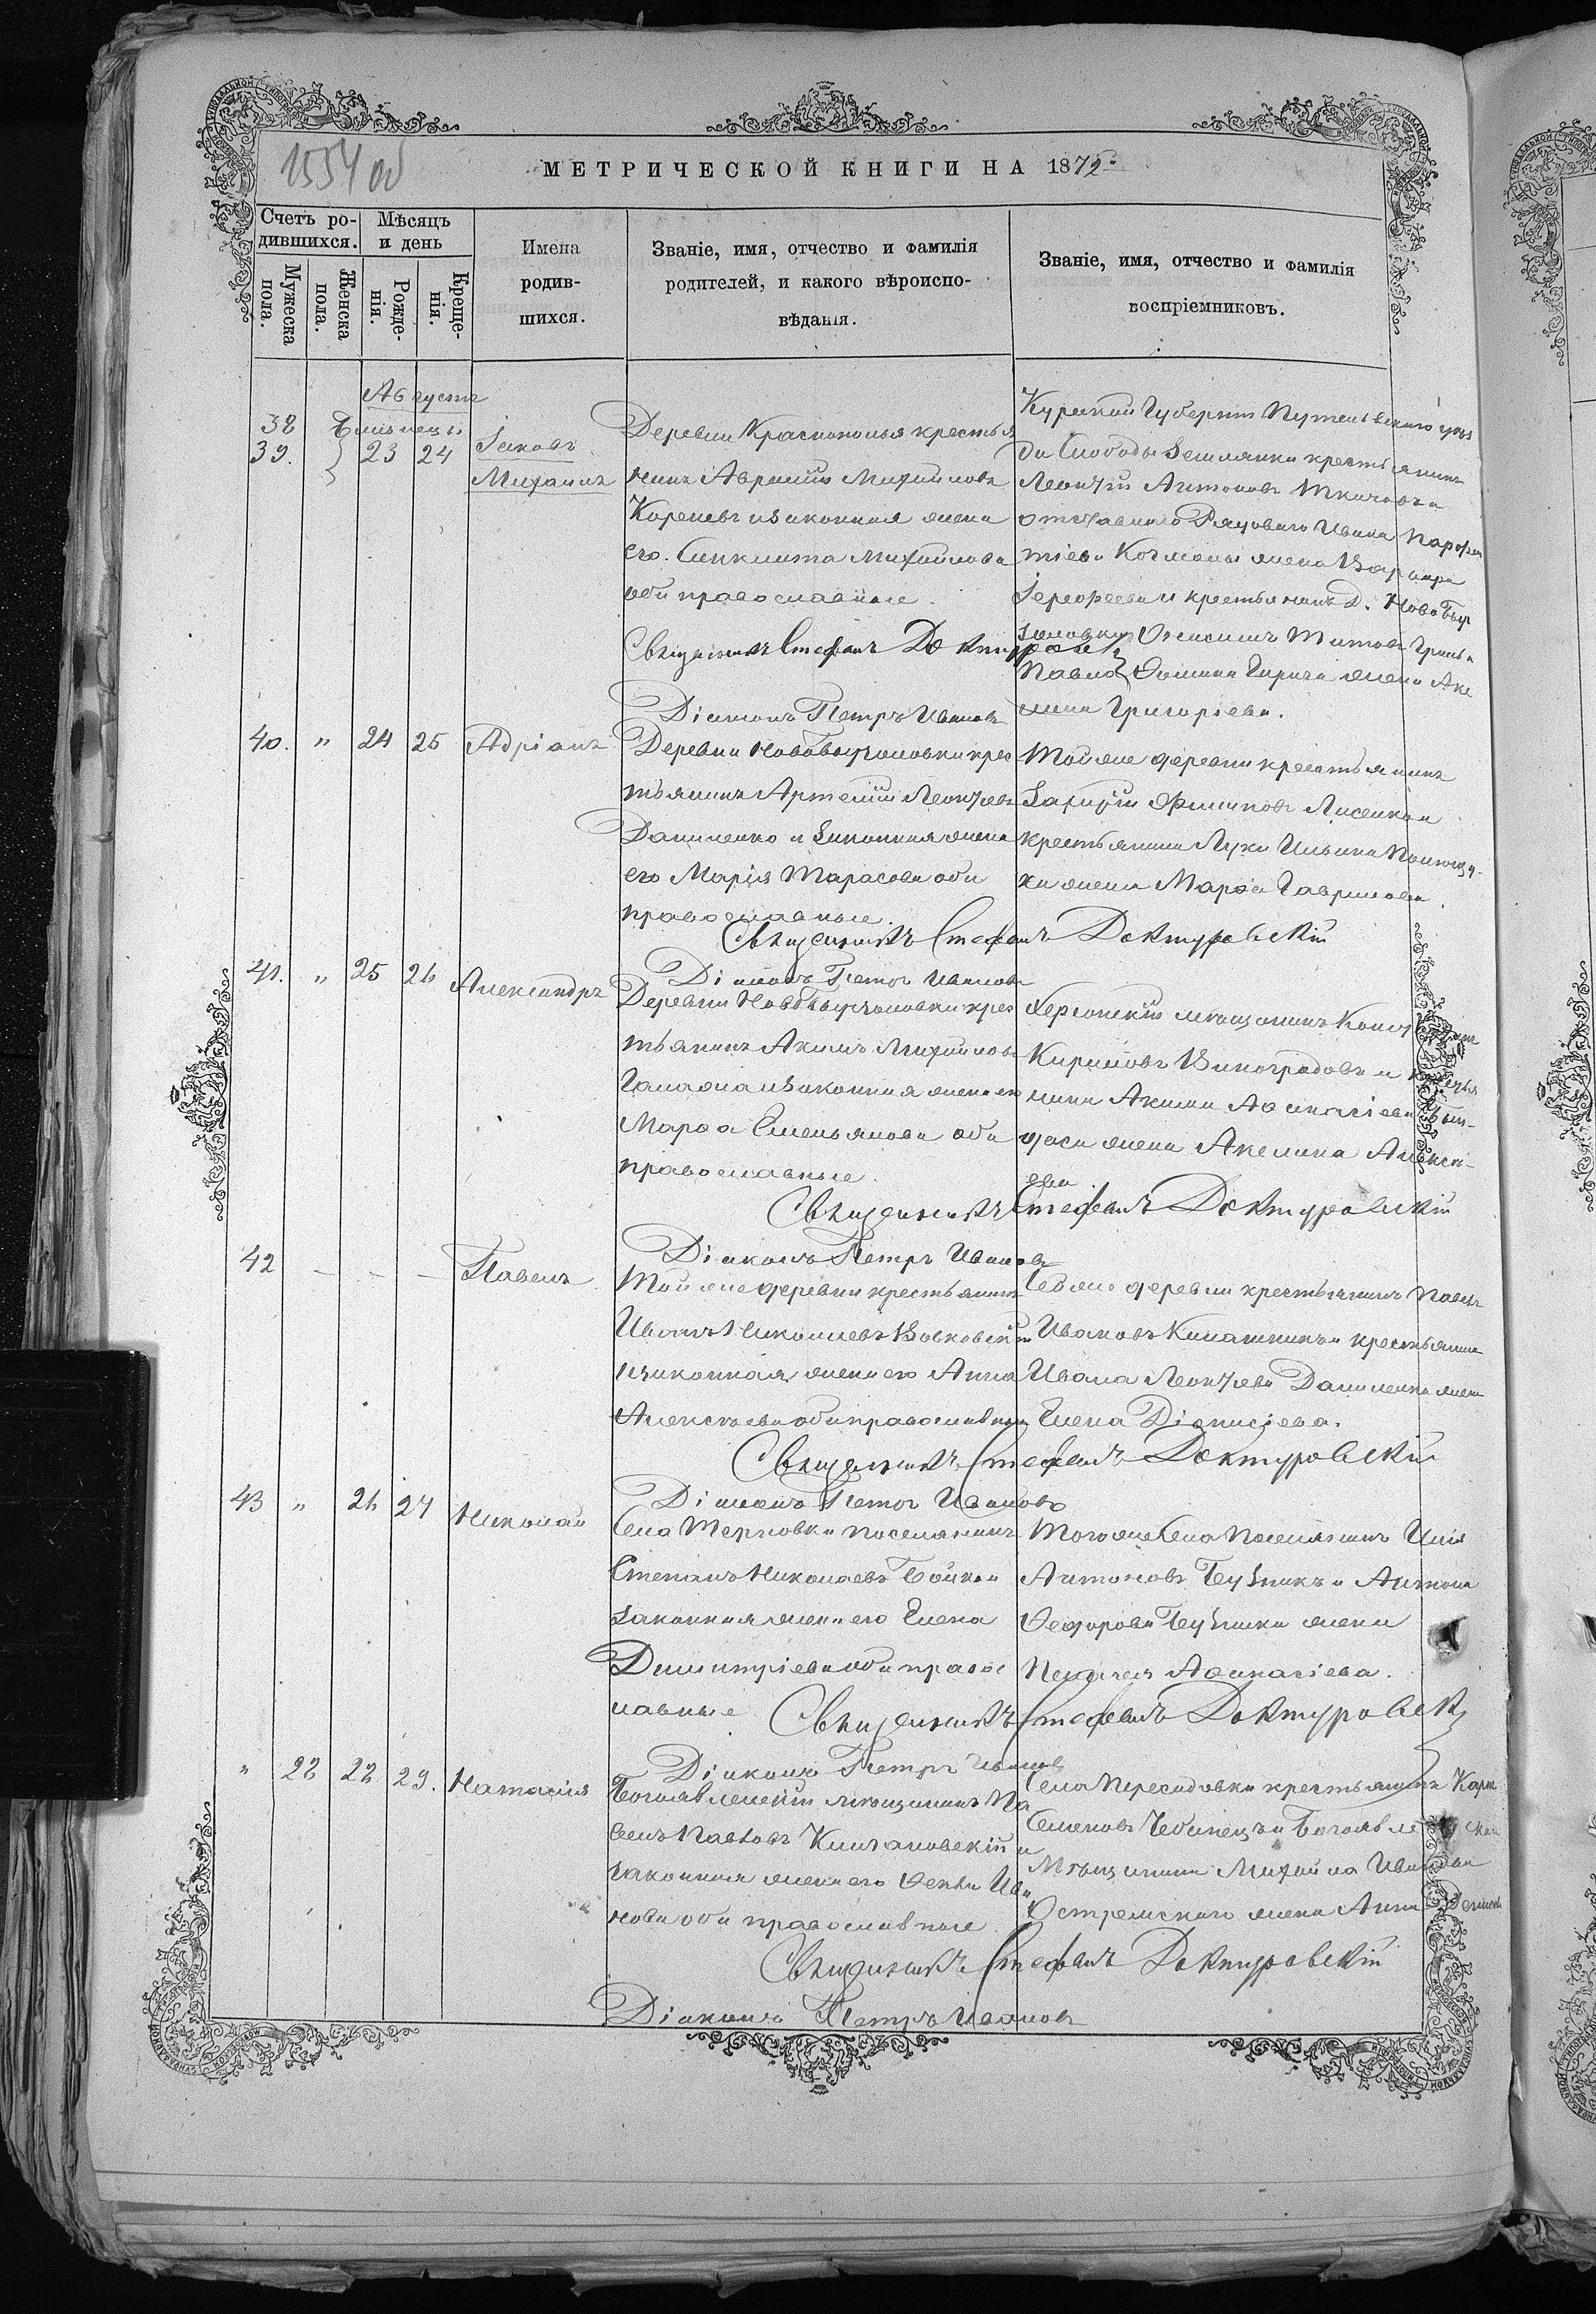 1554 об
МЕТРИЧЕСКОЙ КНИГИ НА 1872
Счетъ ро-
дившихся.
Мужеска
пола.
Женска
пола.
Мѣсяцъ
и день
Рожде-
нія.
Креще-
нія.
Имена
родив-
шихся.
Званіе, имя, отчество и фамилія
родителей, и какого вѣроиспо-
вѣданія.
Званіе, имя, отчество и фамилія
воспріемниковъ.
Августъ
38
39.
Близнецы
23 24
Іаковъ
Михаилъ
Деревни Краснополья крестья
нинъ Аврамій Михайловъ
Кореневъ и законная жена
его Синклита Михайлова
оба православные.
Священникъ Стефанъ Доктуровскій
Діаконъ Петръ Ивановъ
Курской Губерніи Путивльскаго уѣз
да Слободы Землянки крестьянинъ
Леонтій Антоновъ Ткачовъ и
отставнаго Рядоваго Ивана Парфен
тіева жена Варвара
Іерофеева и крестьянинъ Д. Новобыр
зуловки Онисимъ Титовъ и
Павла Фомина жена Аку
лина Григоріева.
40. " 24 25 Адріанъ
Деревни Новобырзуловки крес
тьянинъ Артемій Леонтьевъ
Даниленко и законная жена
его Марія Тарасова оба
православные.
Священникъ Стефанъ Доктуровскій
Діаконъ Петръ Ивановъ
Той же деревни крестьянинъ
Захарій Филиповъ Лисенко и
крестьянина Луки Ильина
жена Марѳа Гаврилова.
41. " 25 26 Александръ
Деревни Новобырзуловки крес
тьянинъ Акимъ Михайловъ
и законная жена его
Марѳа Емельянова оба
православные.
Священникъ Стефанъ Доктуровскій
Діаконъ Петръ Ивановъ
Херсонскій мѣщанинъ
Кириловъ Виноградовъ и крестья
нина Акима Аѳанасіева
жена Акелина Алексѣ-
ева
42 – – – Павелъ
Той же деревни крестьянинъ
Иванъ Николаевъ
и законная жена его Анна
Алексѣева оба православные
Священникъ Стефанъ Доктуровскій
Діаконъ Петръ Ивановъ
Той же деревни крестьянинъ Павелъ
Ивановъ и крестьянина
Ивана Леонтьева Даниленка жена
Елена Діонисіева.
43 " 26 27 Николай
Села Терновки поселянинъ
Степанъ Николаевъ Бойко и
законная жена его Елена
Димитріева оба правос
лавные
Священникъ Стефанъ Доктуровскій
Діаконъ Петръ Ивановъ
Того же Села поселянинъ Илія
Антоновъ Бузникъ и Антона
Ѳеодорова Бузника жена
Пелагея Аѳанасіева.
" 22 22 29. Наталія
Богоявленскій мѣщанинъ Па
велъ Павловъ и
законная жена его Ѳекла Ива
нова оба православные
Священникъ Стефанъ Доктуровскій
Діаконъ Петръ Ивановъ
Села Пересадовки крестьянинъ Карпъ
Семеновъ Чебанецъ и Богоявленскаго
Мѣщанина Михаила Иванова
Остремскаго жена Анна